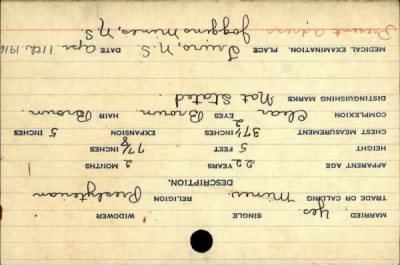 MARRIED Yes. SINGLE WIDOWER
TRADE OR CALLING Miner. RELIGION Presbyterian
DESCRIPTION.
APPARENT AGE 22 YEARS 2 MONTHS
HEIGHT 5 FEET 7 7/8 INCHES
CHEST MEASUREMENT 37 1/2 INCHES EXPANSION 5 INCHES
COMPLEXION Clear EYES Brown. HAIR Brown.
DISTINGUISHING MARKS Not Stated
MEDICAL EXAMINATION. PLACE Truro, N.S. DATE Apr. 11th. 1916
Present Adress Joggins Mines, N.S.